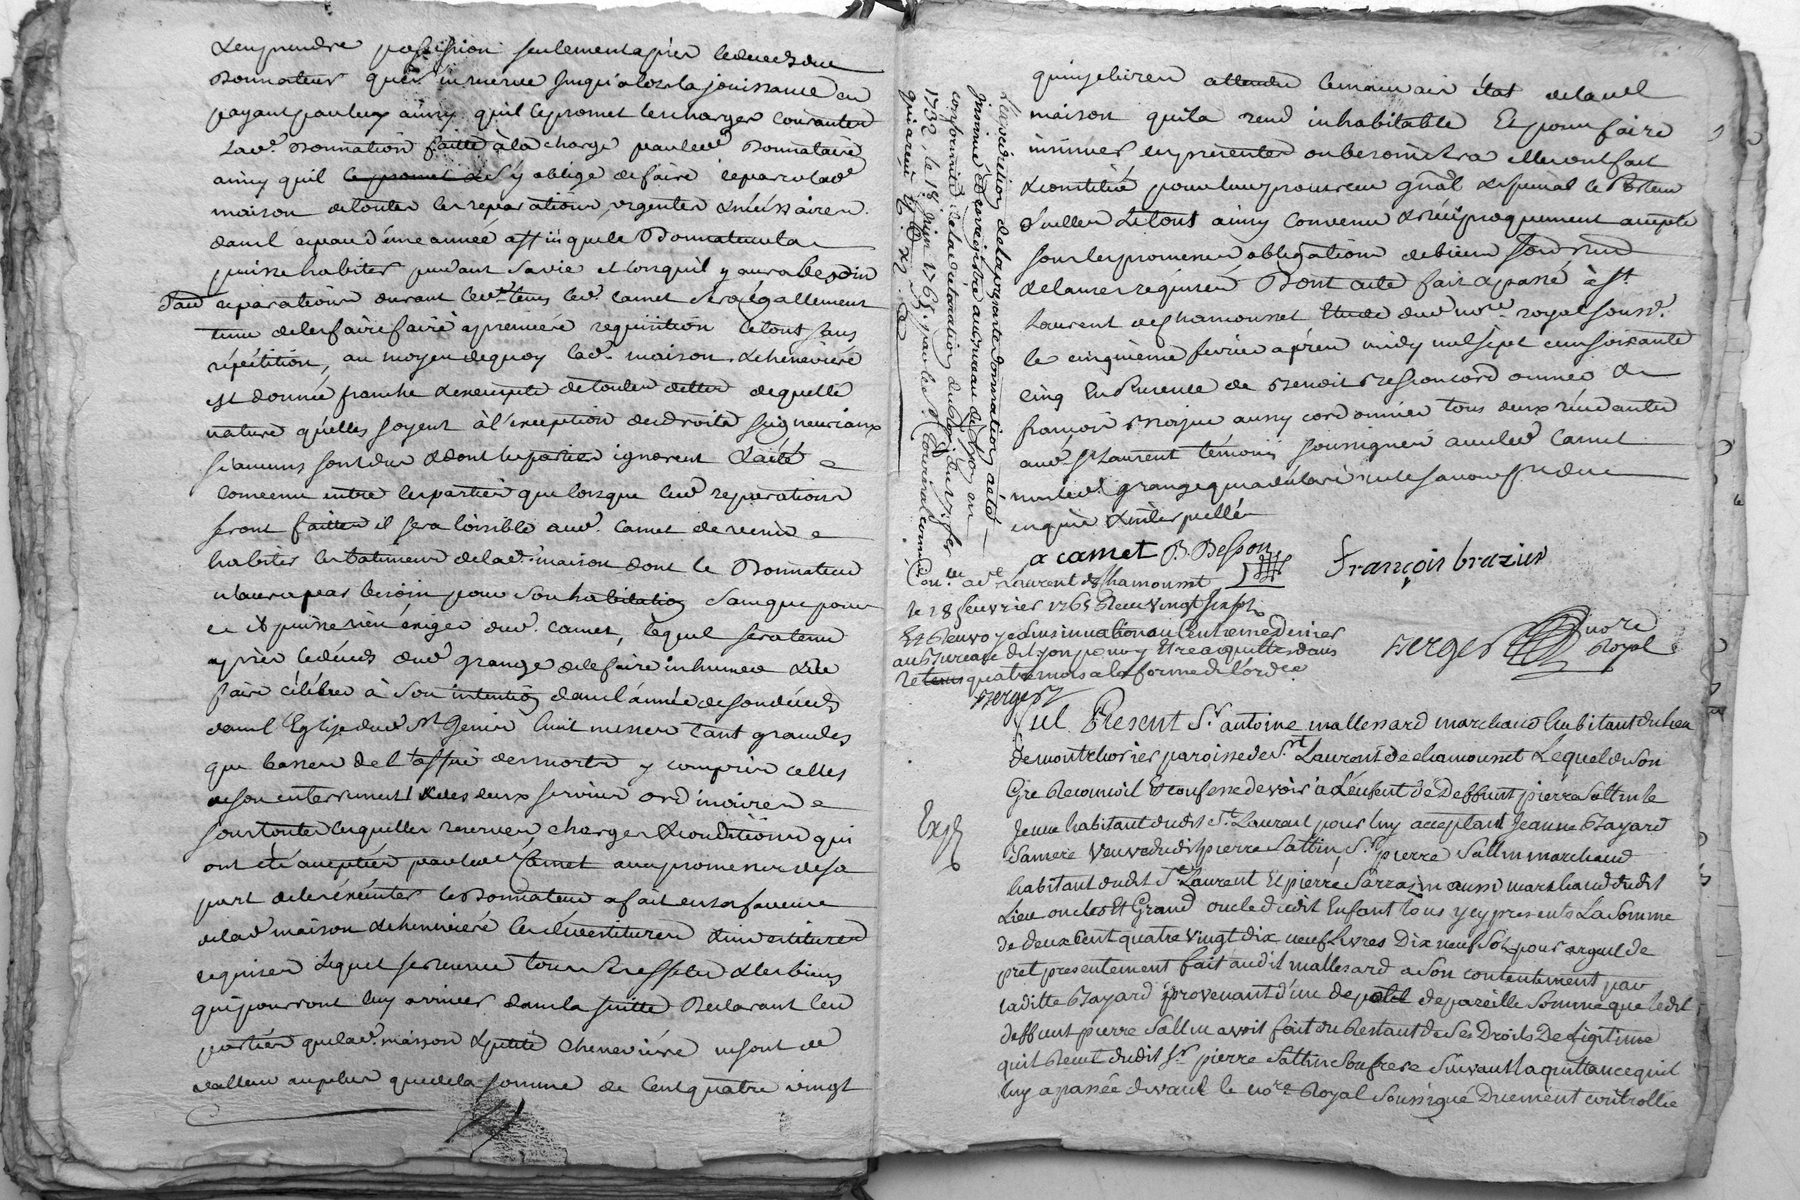 & en prendre possession seulement apres le deces du
Donnateur qui s'en reserve jusqu'alors la jouissance en
payant par luy ainsy qu'il le promet les charges courantes
lad. Donnation faitte à la charge par led. Donnataire
ainsy qu'il le promet de s'y oblige de faire reparer lad.
maison de toutes les reparations urgentes & nécessaires
dans l'espace d'une année affin que le Donnateur la
puisse habiter pendant sa vie et lorsqu'il y aura besoin
d'aud. reparations durant led. tems led. Camet sera égallement
tenu de les faire faire a premiere requisition le tout sans
répétition, au moyen de quoy lad. maison & cheneviere
est donnée franche & exempte de toutes dettes de quelle
nature qu'elles soyent à l'exception des droits seigneuriaux
si aucuns sont dus & dont les parties ignorent & a été
convenu entre les parties que lorsque led. reparations
seront faittes il sera loisible aud. Camet de venir
habiter les batimens de lad. maison dont le Donnateur
n'aura pas besoin pour son habitation sans que pour
ce il puisse rien exiger dud. Camet, lequel sera tenu
après le décès dud. grange de le faire inhumer & de
faire célébrer à son intention dans l'année de son décès
dans l'Eglise dud. St Genis huit messes tant grandes
que basses de l'office des morts y compris celles
de son enterrement & des deux services ordinaires
sous toutes lesquelles reserves charges & conditions qui
ont été acceptées par led. Camet avec promesse de sa
part de les executer le Donnateur a fait en sa faveur
de lad. maison & cheneviere les devestitures & investitures
requises lequel se reserve tous ses effets & les biens
qui pourront luy arriver dans la suitte Declarant les
parties que lad. maison & petite cheneviere ne sont de
valleur au plus que de la somme de Cent quatre vingt
quinze livres attendu le mauvais état de lad.
maison qui la rend inhabitable Et pour faire
insinuer les presentes ou besoin sera elles ont fait
& constitué pour leur procureur gnal & special le Porteur
d'icelles Le tout ainsy convenu & réciproquement accepté
sous les promesses obligations de biens
clauses requises Dont acte fait & passé à St
Laurent de Chamousset Etude dud. nore royal soussé
le cinquième fevrier après midy mil sept cens soixante
cinq En Presence de Benoit Besson cordonnier &
françois Brazier aussy cordonnier tous deux résidants
aud. St Laurent témoins soussignés avec led. Camet
non led. grange qui a déclaré ne le savoir faire
enquis & interpellés
a camet B. Besson François brazier
Con.lé a St Laurent de Chamousset
le 18 feuvrier 1765 Reçu vingt six sols
Et Renvoyé l'insinuation au Centieme denier
au Bureau de Lyon pour y Etre acquittée dans
le tems quatre mois a la forme de l'ord.ce
Berger
Berger nore Royal
L'expedition de la presente donnation a été
insinuée & enregistrée au bureau de Lyon en
conformité de la declaration du Roy du 17 fer
1732, le 18 juin 1765, par le Sr
qui a reçu
Expé
Fut Present Sr. antoine mallessard marchand habitant du lieu
de montchorier paroisse de St Laurent de chamousset Lequel de Son
Gre Reconnoit Et confesse devoir a L'enfent de Deffunt pierre Sattin le
Jeune habitant dudit St. Laurent pour luy acceptant Jeanne Bayard
Sa mere Veuve dudit pierre Sattin, Sr. pierre Sattin marchand
habitant dudit St Laurent Et pierre Sarrazin aussi marchand dudit
Lieu oncles Et Grand oncle dudit Enfant tous y cy presents La Somme
de deux Cent quatre Vingt dix neuf Livres Dix neuf Sols pour argent de
pret presentement fait audit mallessard a Son contentement par
laditte Bayard provenant d'un depot de pareille Somme que ledit
deffunt pierre Sattin avoit fait du Restant de Ses Droits De Ligitime
qu'il Recut dudit Sr. pierre Sattin Son frere Suivant la quittance qu'il
luy a passée devant le nore Royal Soussigné Duement controllée